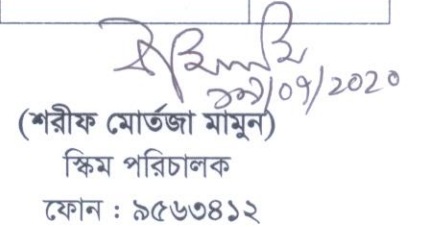 (শরীফ মোর্তজা মামুন)
স্কিম পরিচালক
ফোন : ৯৫৬৩৪১২